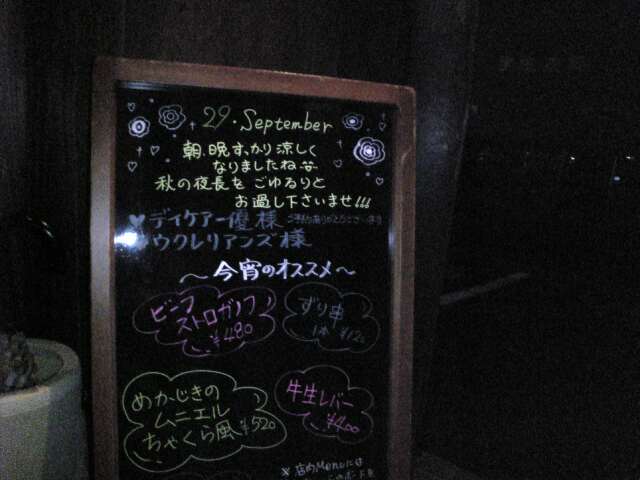 29・September
朝、晩すっかり涼しく
なりましたね
秋の夜長を ごゆるりと
お過し下さいませ!!!
♥デイケアー優様 ご予約ありがとうございます
♥ウクレリアンズ様
～今宵のオススメ～
ビーフ
ストロガノフ
¥480
ずり串
1本 ¥120
めかじきの
ムニエル
ちゃくら風 ¥520
牛生レバー
¥400
※店内Menuには